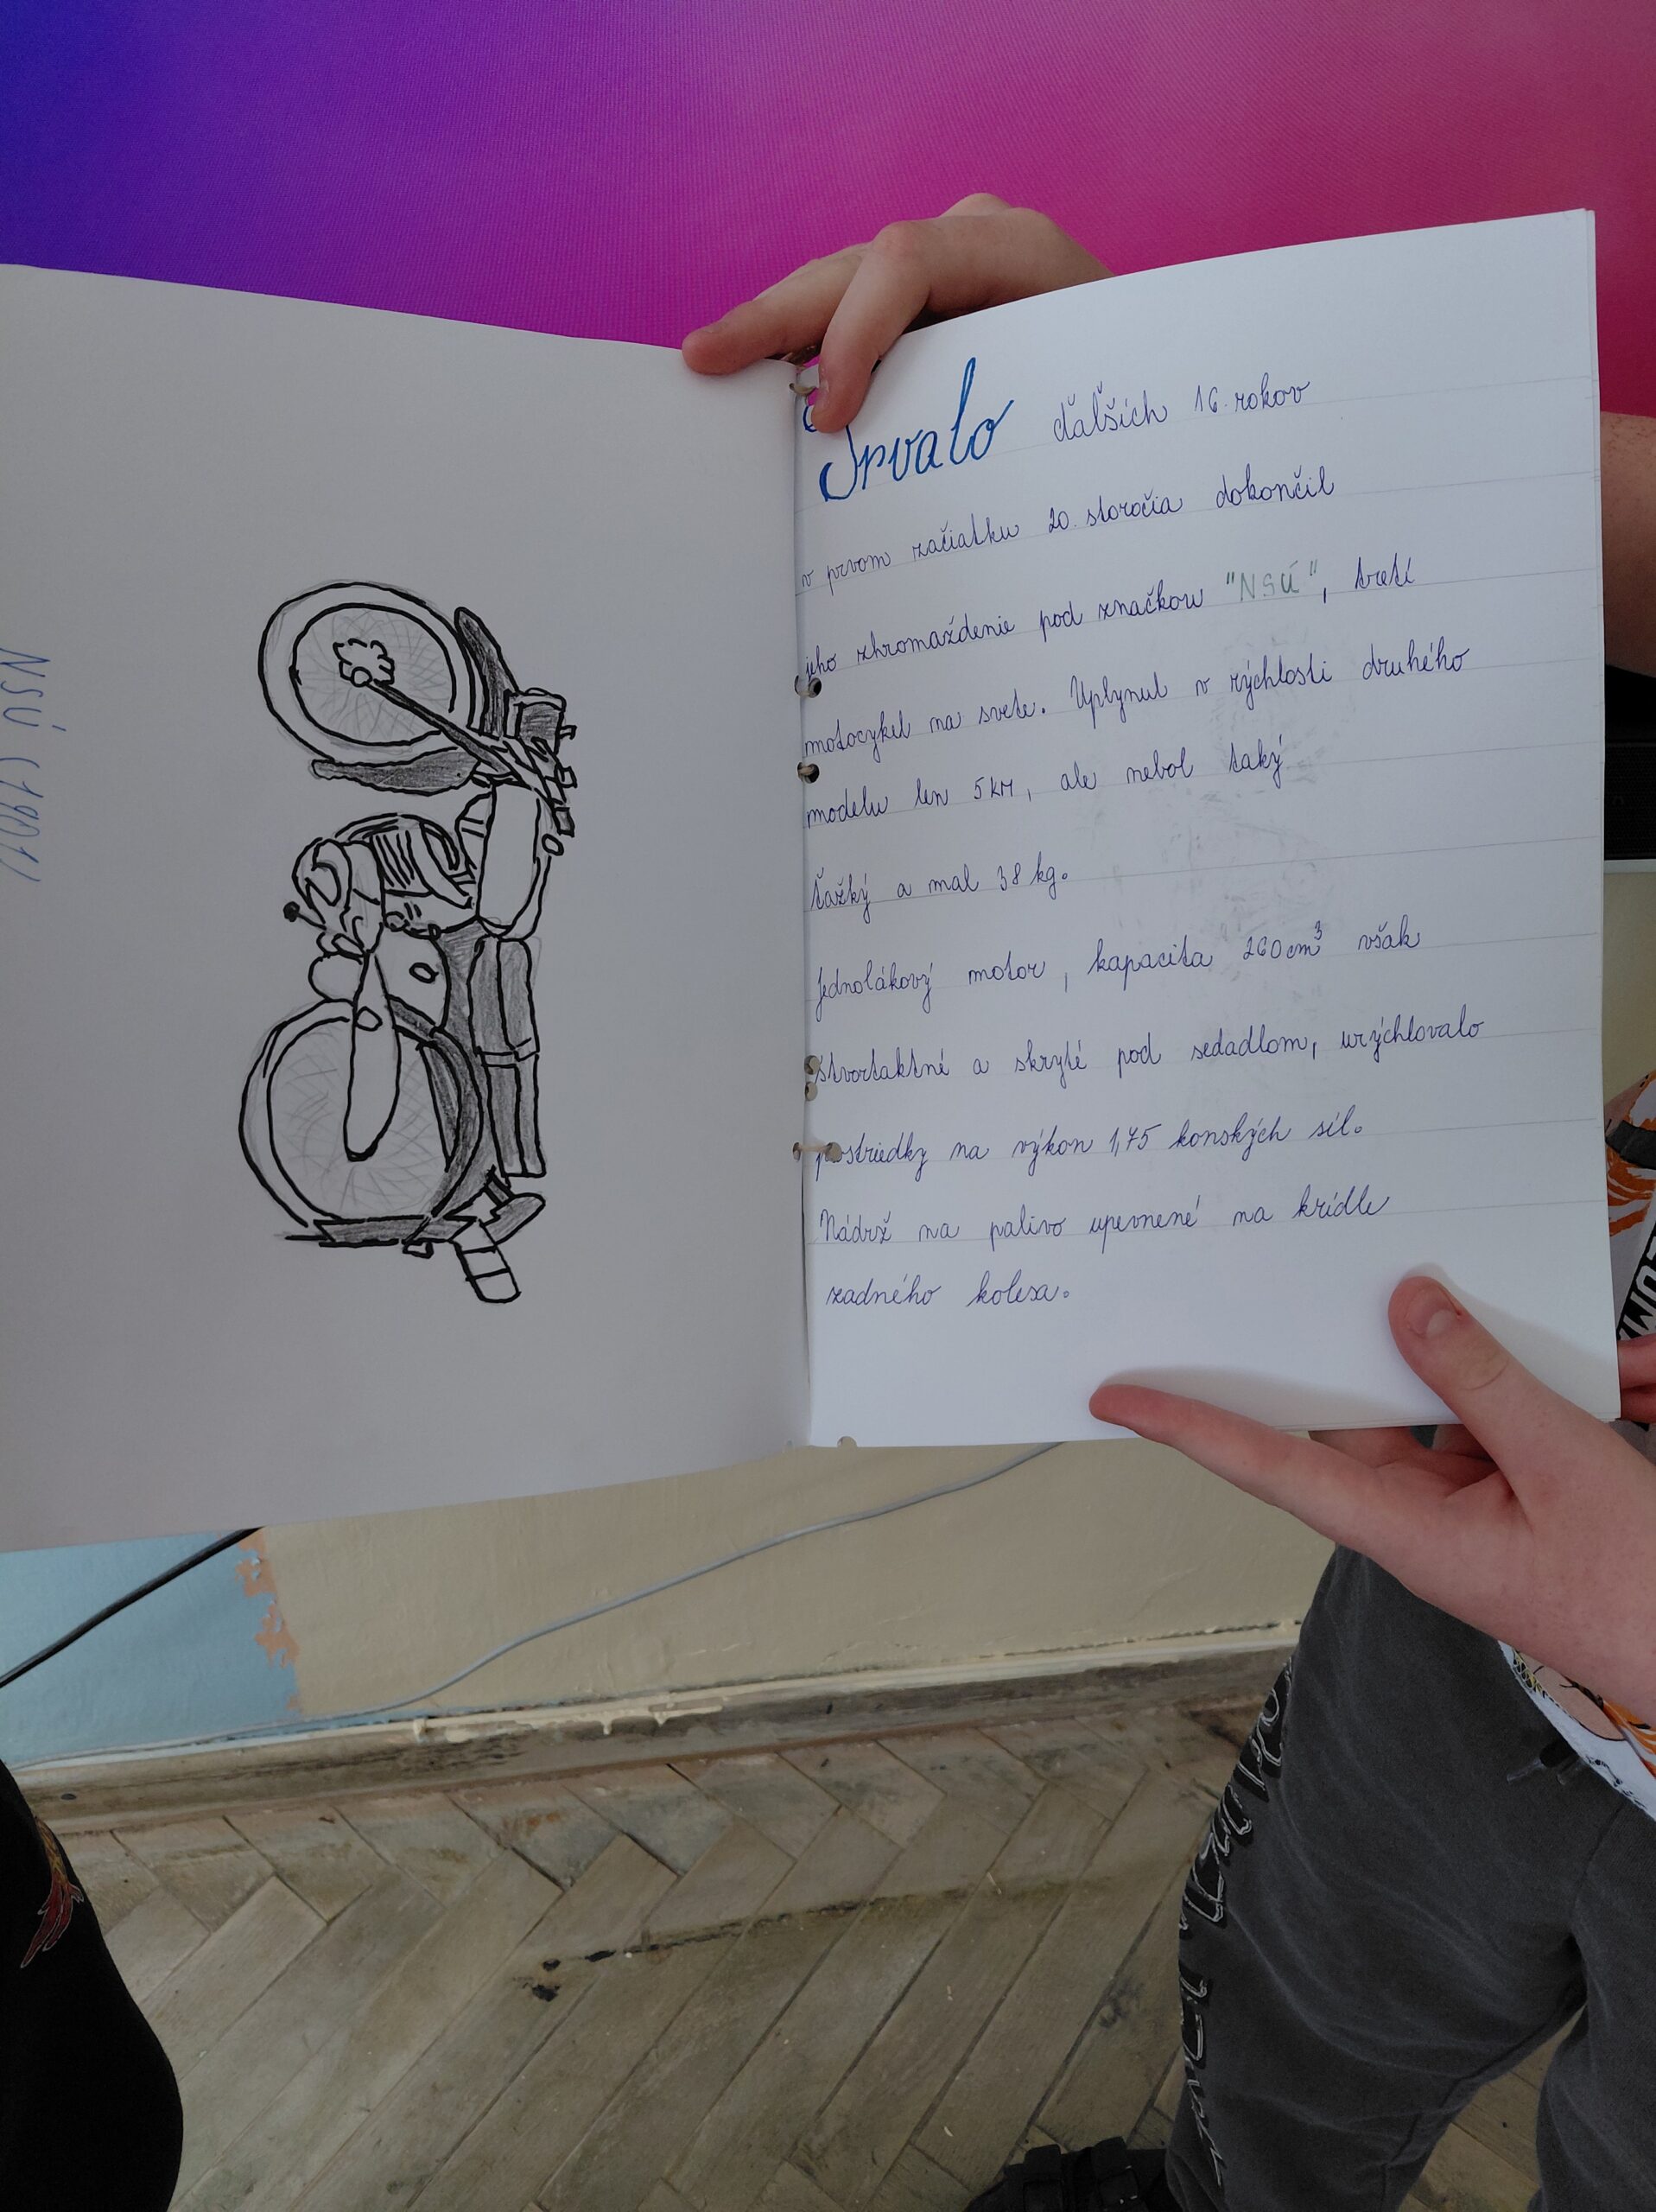 NSÚ (1901)
Trvalo ďaľších 16. rokov
v prvom začiatku 20. storočia dokončil
jeho zhromaždenie pod značkou "NSÚ", tretí
motocykel na svete. Uplynul v rýchlosti druhého
modelu len 5 KM, ale nebol taký
ťažký a mal 38 kg.
Jednolákový motor, kapacita 260 cm³ však
štvortaktné a skryté pod sedadlom, urýchlovalo
prostriedky na výkon 1,75 konských síl.
Nádrž na palivo upevnené na krídle
zadného kolesa.